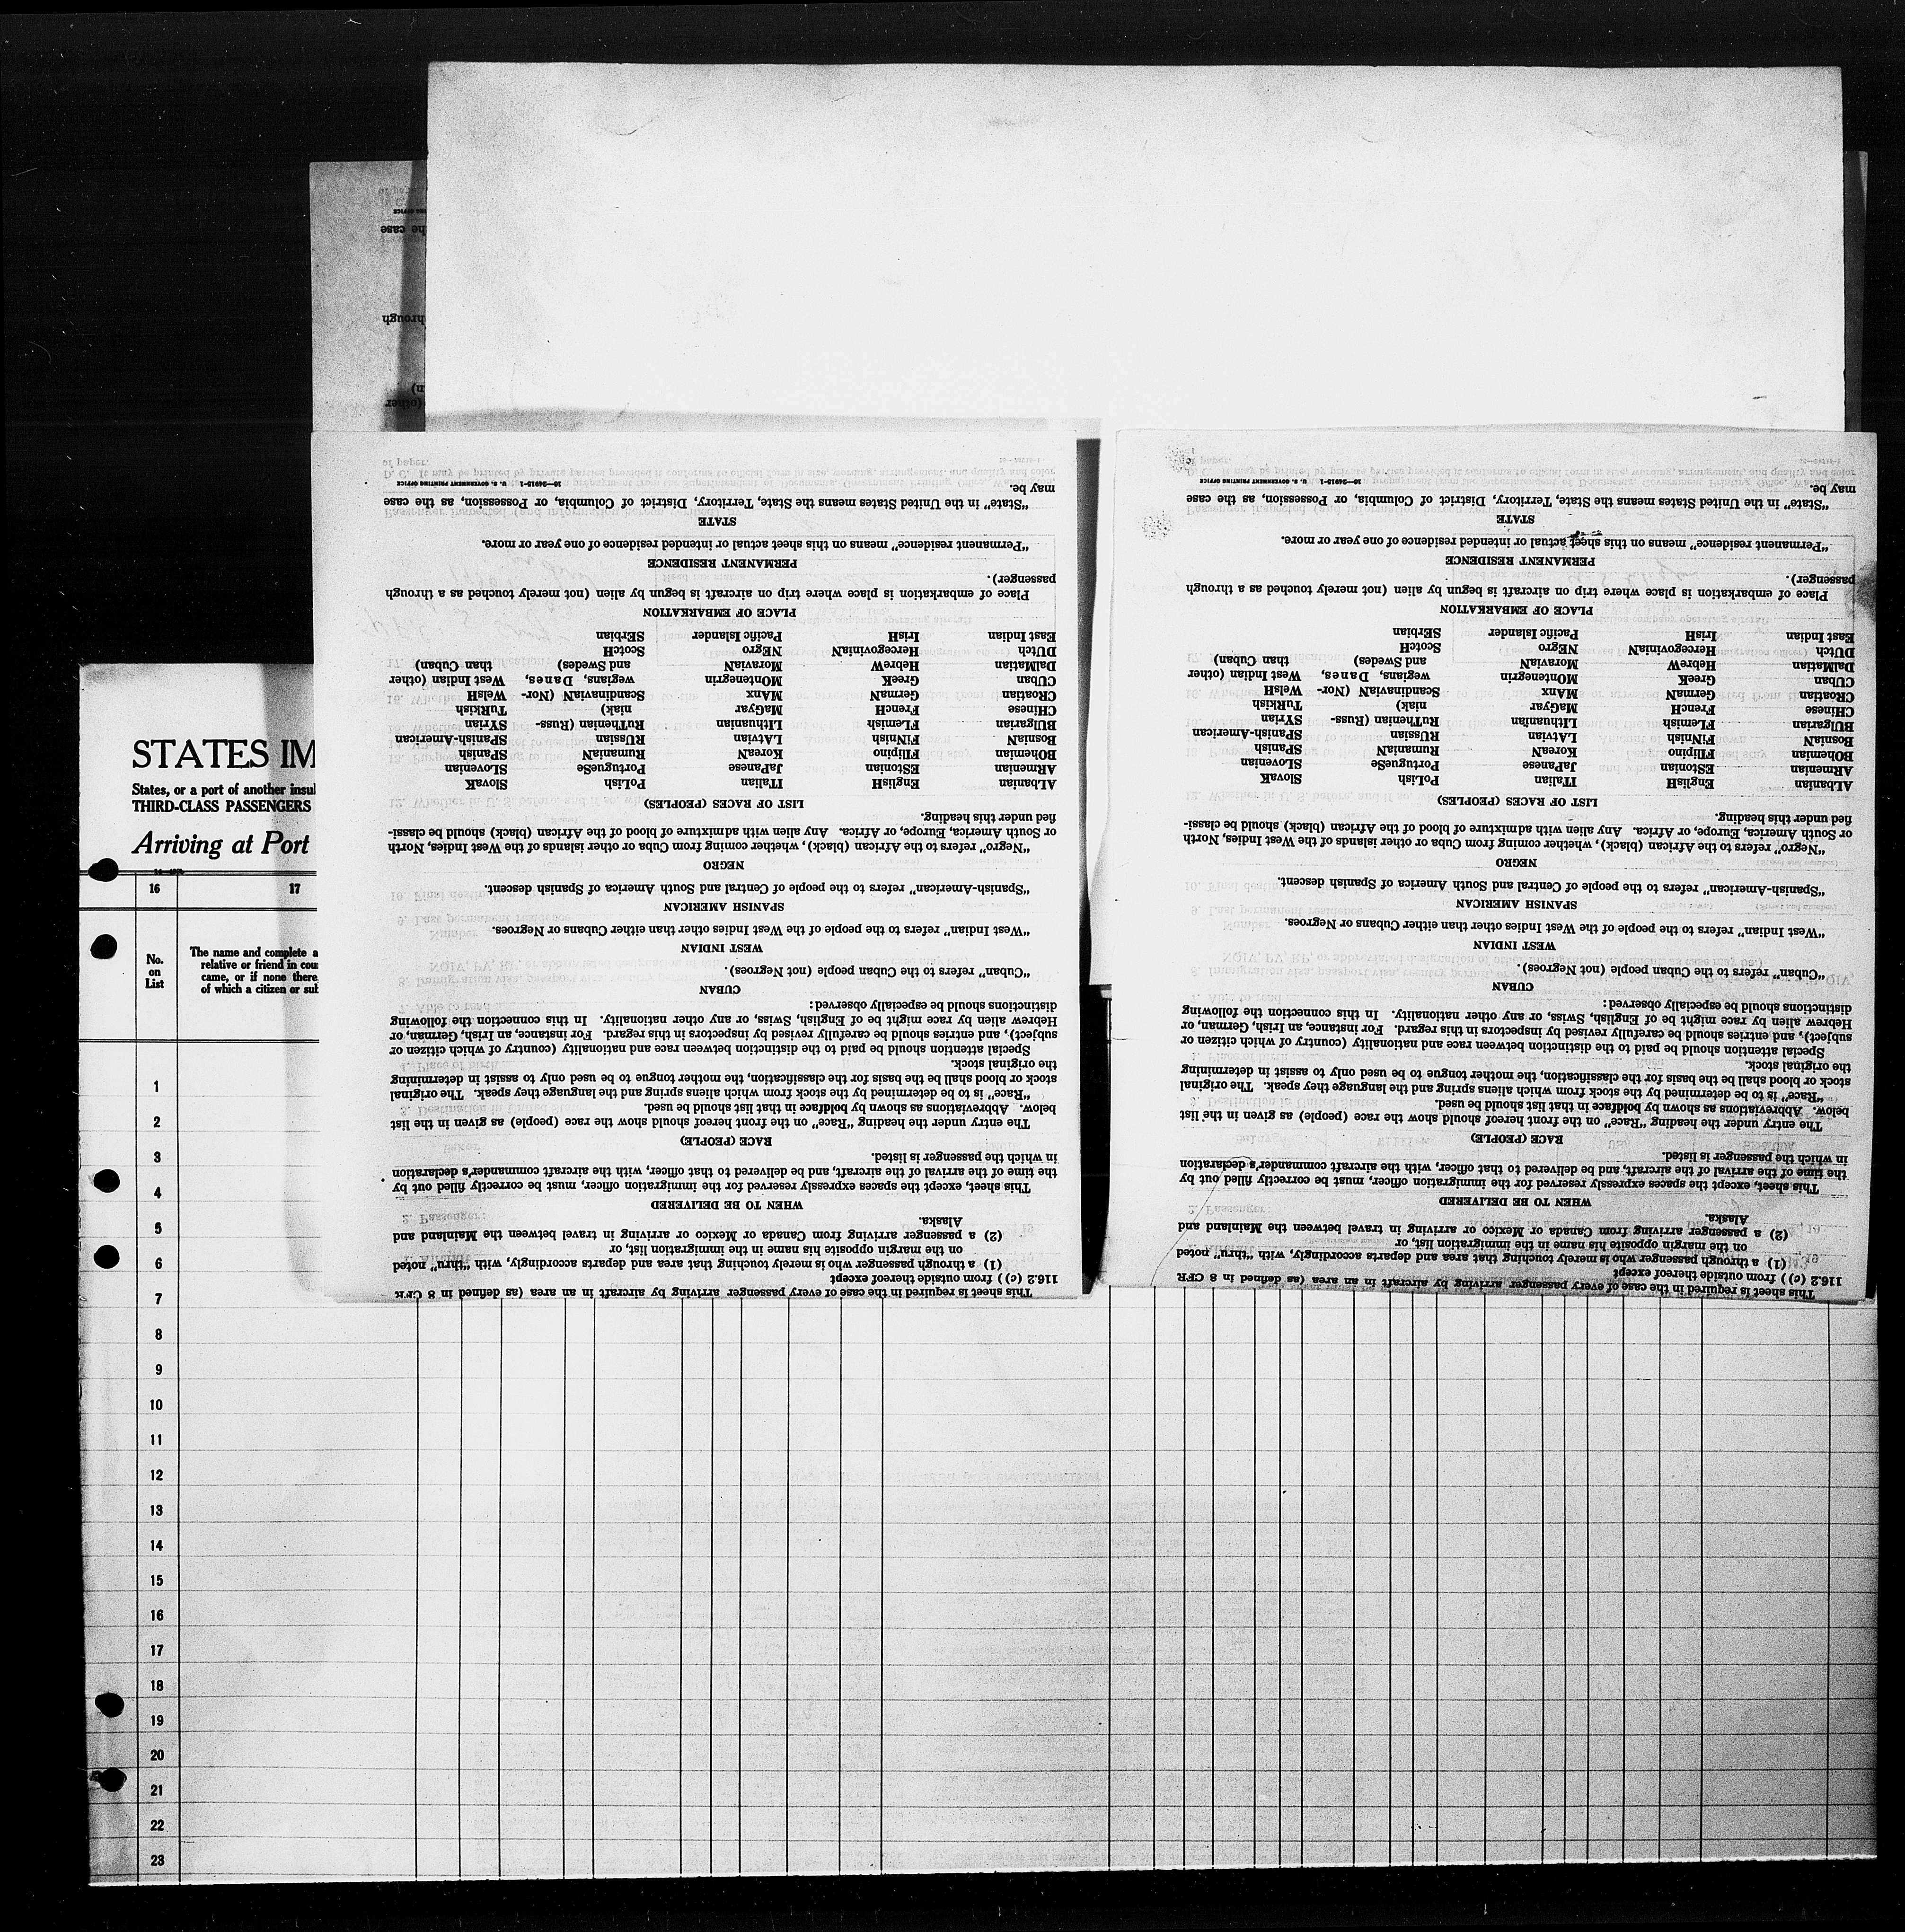 STATES IM
States, or a port of another insul
THIRD-CLASS PASSENGERS
Arriving at Port
16 17
No.
on
List
The name and complete a
relative or friend in cou
came, or if none there
of which a citizen or sub
1
2
3
4
5
6
7
8
9
10
11
12
13
14
15
16
17
18
19
20
21
22
23
This sheet is required in the case of every passenger arriving by aircraft in an area (as defined in 8 CFR
116.2 (c)) from outside thereof except
(1) a through passenger who is merely touching that area and departs accordingly, with “thru” noted
on the margin opposite his name in the immigration list, or
(2) a passenger arriving from Canada or Mexico or arriving in travel between the Mainland and
Alaska.
WHEN TO BE DELIVERED
This sheet, except the spaces expressly reserved for the immigration officer, must be correctly filled out by
the time of the arrival of the aircraft, and be delivered to that officer, with the aircraft commander's declaration
in which the passenger is listed.
RACE (PEOPLE)
The entry under the heading “Race” on the front hereof should show the race (people) as given in the list
below. Abbreviations as shown by boldface in that list should be used.
“Race” is to be determined by the stock from which aliens spring and the language they speak. The original
stock or blood shall be the basis for the classification, the mother tongue to be used only to assist in determining
the original stock.
Special attention should be paid to the distinction between race and nationality (country of which citizen or
subject), and entries should be carefully revised by inspectors in this regard. For instance, an Irish, German, or
Hebrew alien by race might be of English, Swiss, or any other nationality. In this connection the following
distinctions should be especially observed:
CUBAN
“Cuban” refers to the Cuban people (not Negroes).
WEST INDIAN
“West Indian” refers to the people of the West Indies other than either Cubans or Negroes.
SPANISH AMERICAN
“Spanish-American” refers to the people of Central and South America of Spanish descent.
NEGRO
“Negro” refers to the African (black), whether coming from Cuba or other islands of the West Indies, North
or South America, Europe, or Africa. Any alien with admixture of blood of the African (black) should be classi-
fied under this heading.
LIST OF RACES (PEOPLES)
ALbanian EnglisH ITalian PoLish SlovaK
ARmenian EStonian JaPanese PortugueSe SLOvenian
BOhemian FIlipino KoreaN RumaniaN SPanish
BosniaN FiNnish LATvian RUssian SPanish-American
BUlgarian FLemish LIthuanian RuThenian (Russ- SYrian
CHinese FrencH MaGyar niak) TuRkish
CRoatian GermaN MAnx ScandinaviaN (Nor- WelsH
CUban GreeK MOntenegrin wegians, Danes, West Indian (other
DalMatian HebreW MoraviaN and Swedes) than Cuban)
DUtch HercegoviniaN NEgro ScotcH
East Indian IrisH Pacific Islander SErbian
PLACE OF EMBARKATION
Place of embarkation is place where trip on aircraft is begun by alien (not merely touched as a through
passenger).
PERMANENT RESIDENCE
“Permanent residence” means on this sheet actual or intended residence of one year or more.
STATE
“State” in the United States means the State, Territory, District of Columbia, or Possession, as the case
may be.
16—24915-1 U. S. GOVERNMENT PRINTING OFFICE
This sheet is required in the case of every passenger arriving by aircraft in an area (as defined in 8 CFR
116.2 (c)) from outside thereof except
(1) a through passenger who is merely touching that area and departs accordingly, with “thru” noted
on the margin opposite his name in the immigration list, or
(2) a passenger arriving from Canada or Mexico or arriving in travel between the Mainland and
Alaska.
WHEN TO BE DELIVERED
This sheet, except the spaces expressly reserved for the immigration officer, must be correctly filled out by
the time of the arrival of the aircraft, and be delivered to that officer, with the aircraft commander's declaration
in which the passenger is listed.
RACE (PEOPLE)
The entry under the heading “Race” on the front hereof should show the race (people) as given in the list
below. Abbreviations as shown by boldface in that list should be used.
“Race” is to be determined by the stock from which aliens spring and the language they speak. The original
stock or blood shall be the basis for the classification, the mother tongue to be used only to assist in determining
the original stock.
Special attention should be paid to the distinction between race and nationality (country of which citizen or
subject), and entries should be carefully revised by inspectors in this regard. For instance, an Irish, German, or
Hebrew alien by race might be of English, Swiss, or any other nationality. In this connection the following
distinctions should be especially observed:
CUBAN
“Cuban” refers to the Cuban people (not Negroes).
WEST INDIAN
“West Indian” refers to the people of the West Indies other than either Cubans or Negroes.
SPANISH AMERICAN
“Spanish-American” refers to the people of Central and South America of Spanish descent.
NEGRO
“Negro” refers to the African (black), whether coming from Cuba or other islands of the West Indies, North
or South America, Europe, or Africa. Any alien with admixture of blood of the African (black) should be classi-
fied under this heading.
LIST OF RACES (PEOPLES)
ALbanian EnglisH ITalian PoLish SlovaK
ARmenian EStonian JaPanese PortugueSe SLOvenian
BOhemian FIlipino KoreaN RumaniaN SPanish
BosniaN FiNnish LATvian RUssian SPanish-American
BUlgarian FLemish LIthuanian RuThenian (Russ- SYrian
CHinese FrencH MaGyar niak) TuRkish
CRoatian GermaN MAnx ScandinaviaN (Nor- WelsH
CUban GreeK MOntenegrin wegians, Danes, West Indian (other
DalMatian HebreW MoraviaN and Swedes) than Cuban)
DUtch HercegoviniaN NEgro ScotcH
East Indian IrisH Pacific Islander SErbian
PLACE OF EMBARKATION
Place of embarkation is place where trip on aircraft is begun by alien (not merely touched as a through
passenger).
PERMANENT RESIDENCE
“Permanent residence” means on this sheet actual or intended residence of one year or more.
STATE
“State” in the United States means the State, Territory, District of Columbia, or Possession, as the case
may be.
16—24915-1 U. S. GOVERNMENT PRINTING OFFICE